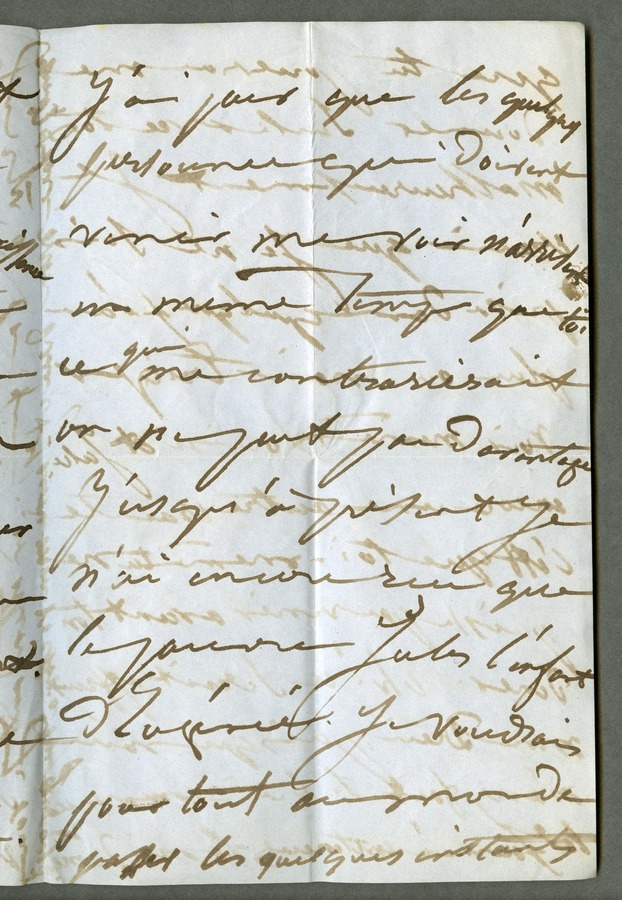 J'ai peur que les quelques
personnes qui doivent
venir me voir n'arrivent
en même temps que toi
ce qui me contrarierait
on ne peut pas davantage
Jusqu'à présent je
n'ai encore que
le pauvre Jules l'enfant
d'Eugénie. Je voudrais
pour tout au monde
passer les quelques instants